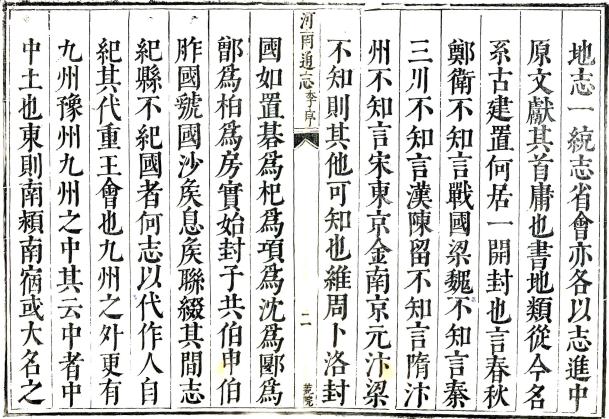 地志一統志省會亦各以志進中
原文獻其首庸也書地類從今名
系古建置何居一開封也言春秋
鄭衛不知言戰國梁魏不知言秦
三川不知言漢陳留不知言隋汴
州不知言宋東京金南京元汴梁
不知則其他可知也維周卜洛封
河南通志 李序 二
國如置碁爲杞爲項爲沈爲郾爲
鄫爲柏爲房實始封子共伯申伯
胙國虢國沙矦息矦聯綴其間志
紀縣不紀國者何志以代作人自
紀其代重王會也九州之外更有
九州豫州九州之中其云中者中
中土也東則南潁南宿或大名之